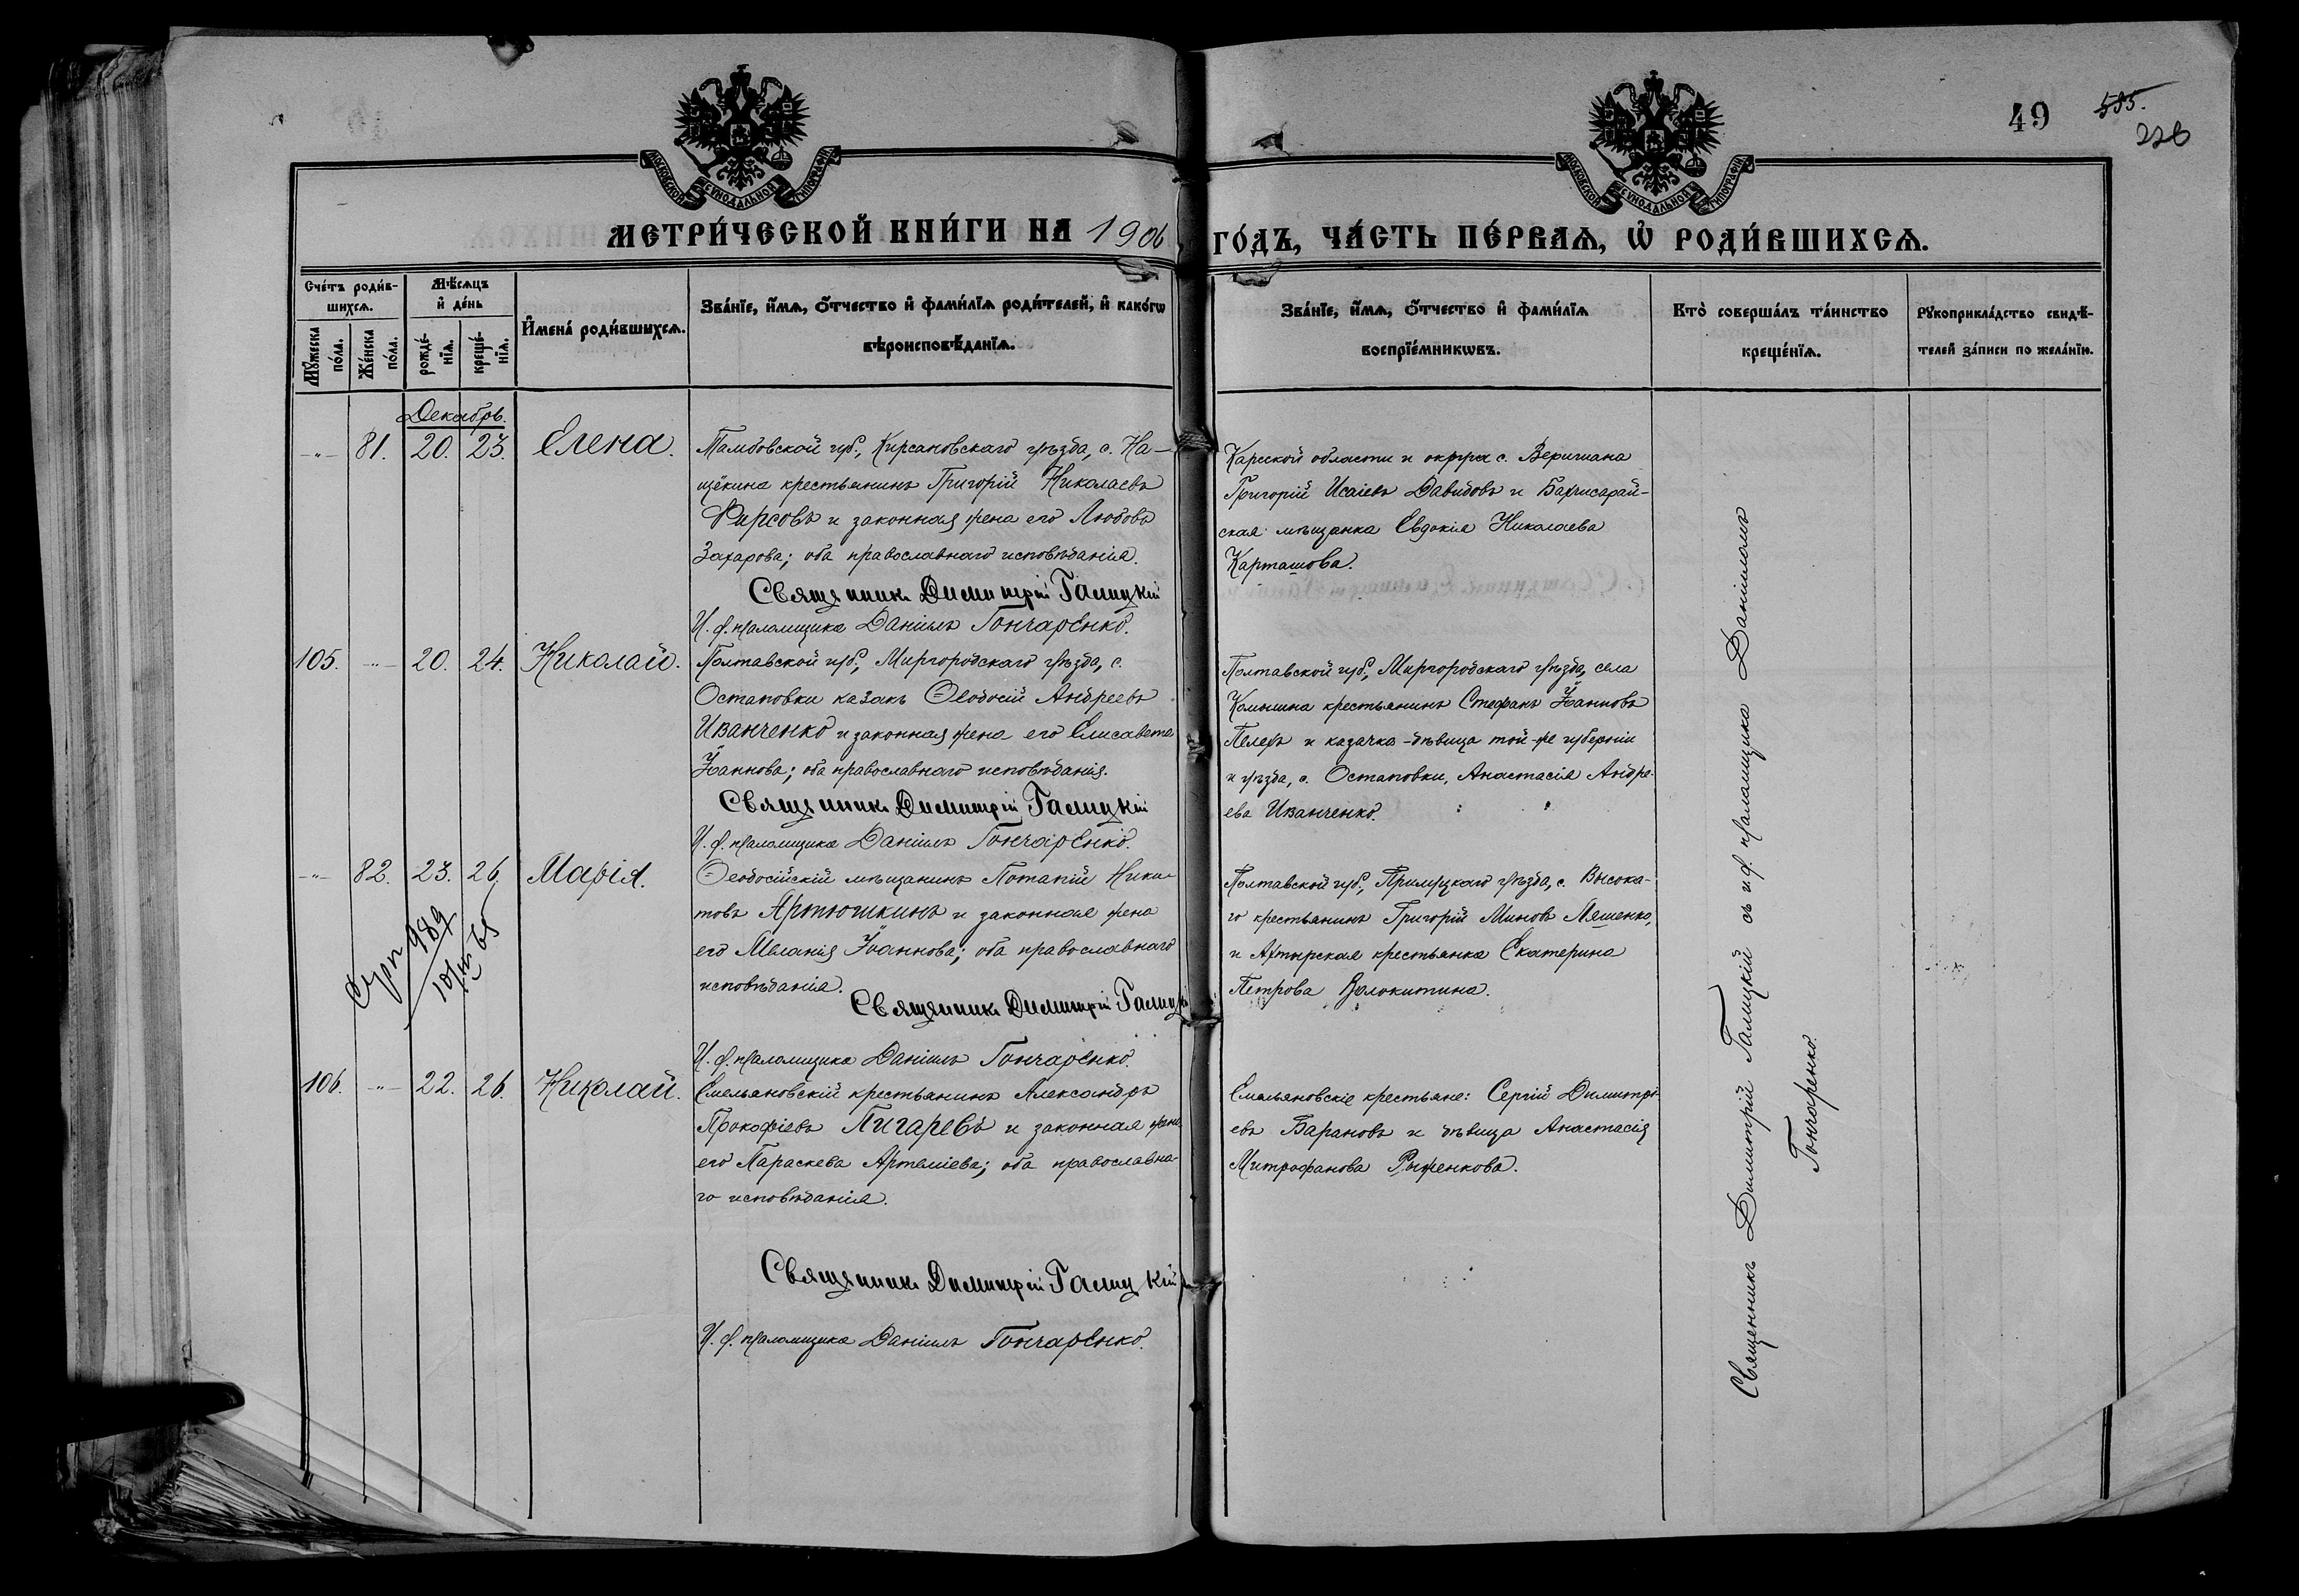 49
595.
226
МОСКОВСКОЙ СѴНОДАЛЬНОЙ ТИПОГРАФІИ
МОСКОВСКОЙ СѴНОДАЛЬНОЙ ТИПОГРАФІИ
МЕТРИ́ЧЕСКОЙ КНИ́ГИ НА 1906 ГО́ДЪ, ЧА́СТЬ ПЕ́РВАѦ, Ѡ҆ РОДИ́ВШИХСѦ.
Сче́тъ роди́в-
шихсѧ.
Мꙋ́жеска по́ла.
Же́нска по́ла.
Мѣ́сѧцъ
и҆ де́нь
рожде́-
нїѧ.
креще́-
нїѧ.
И҆мена̀ роди́вшихсѧ.
Зва́нїе, и҆́мѧ, ѻ҆́тчество и҆ фами́лїѧ роди́телей, и҆ како́гѡ
вѣроисповѣ́данїѧ.
Зва́нїе, и҆́мѧ, ѻ҆́тчество и҆ фами́лїѧ
воспрїе́мникѡвъ.
Кто̀ соверша́лъ та́инство
креще́нїѧ.
Рꙋкоприкла́дство свидѣ́-
телей за́писи по жела́нїю.
Декабрь.
-"- 81. 20. 23. Елена.
Тамбовской губ., Кирсановскаго уѣзда, с. На-
щёкина крестьянинъ Григорій Николаевъ
Фирсовъ и законная жена его Любовь
Захарова; оба православнаго исповѣданія.
Священникъ Димитрій Галицкій
И. ф. псаломщика Даніилъ Гончаренко.
Карсской области и округа с. Веришана
Григорій Исаіевъ Давидовъ и Бахчисарай-
ская мѣщанка Евдокія Николаева
Карташова.
105. -"- 20. 24. Николай.
Полтавской губ., Миргородскаго уѣзда, с.
Остаповки казакъ Ѳеодосій Андреевъ
Иванченко и законная жена его Елисавета
Іоаннова; оба православнаго исповѣданія.
Священникъ Димитрій Галицкій
И. ф. псаломщика Даніилъ Гончаренко.
Полтавской губ., Миргородскаго уѣзда, села
Комышна крестьянинъ Стефанъ Іоанновъ
Пелехъ и казачка-дѣвица той-же губерніи
и уѣзда, с. Остаповки, Анастасія Андре-
ева Иванченко.
-"- 82. 23. 26. Марія.
989
Ѳеодосійскій мѣщанинъ Потапій Ники-
товъ Артюшкинъ и законная жена
его Меланія Іоаннова; оба православнаго
исповѣданія.
Священникъ Димитрій Галицкій
И. ф. псаломщика Даніилъ Гончаренко.
Полтавской губ., Прилуцкаго уѣзда, с. Высока-
го крестьянинъ Григорій Миновъ Ляшенко,
и Ахтырская крестьянка Екатерина
Петрова Волокитина.
106. -"- 22. 26. Николай.
Емельяновскій крестьянинъ Александръ
Прокофіевъ Пигаревъ и законная жена
его Параскева Артеміева; оба православна-
го исповѣданія.
Священникъ Димитрій Галицкій
И. ф. псаломщика Даніилъ Гончаренко.
Емельяновскіе крестьяне: Сергій Димитрі-
евъ Барановъ и дѣвица Анастасія
Митрофанова Рыженкова.
Священникъ Димитрій Галицкій съ и. ф. псаломщика Даніиломъ
Гончаренко.